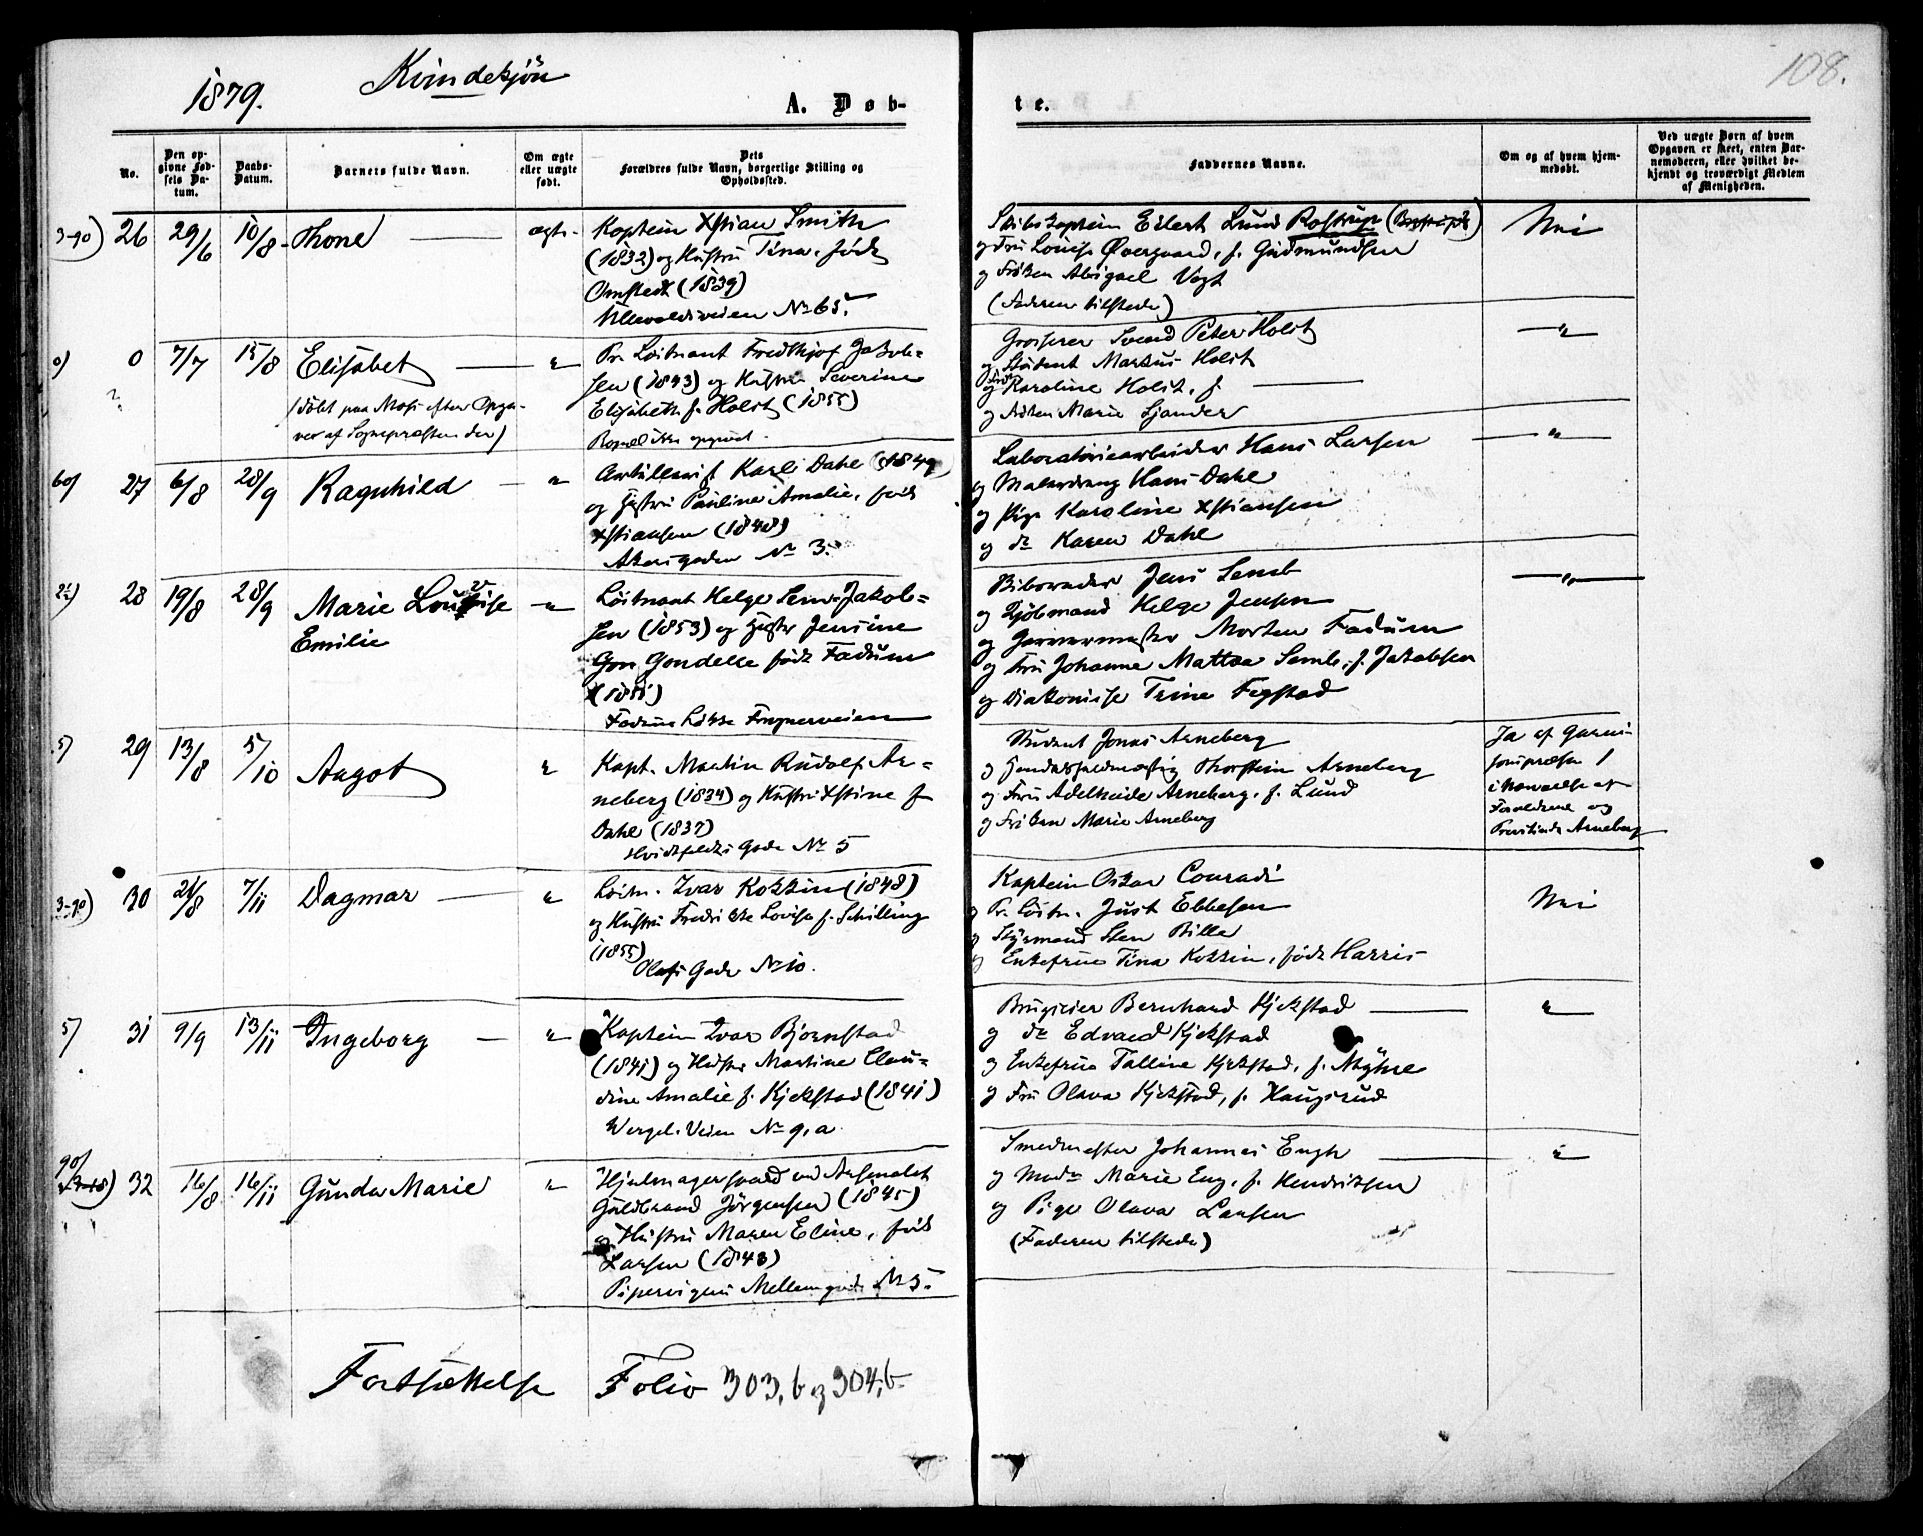 1879.
Kvindekjön
A. Døb-
te.
108.
No.
Den op-
givne Fød-
sels Da-
tum.
Daabs-
Datum.
Barnets fulde Navn.
Om ægte
eller uægte
født.
Dets
Forældres fulde Navn, borgerlige Stilling og
Opholdssted.
Faddernes Navne.
Om og af hvem hjem-
medøbt.
Ved uægte Børn af hvem
Opgaven er skeet, enten Bar-
nemoderen, eller hvilket be-
kjendt og troværdigt Medlem
af Menigheden.
3-90) 26 29/6 10/8 Thone ægte
Kaptein Xstian Smith
(1832) og Hustru Tina, født
Omstedt (1839)
Ullevoldsveien No 65.
Skibskaptein Eilert Lund Rostrup
og Fru Louise Overgaard, f. Gudmundsen
og Frøken Abigael Vogt
(Faderen tilstede)
Nei
0) 0 7/7 15/8 Elisabet "
(döbt paa Moss efter Opga-
ver af Sognepræsten der)
Pr. Løitnant Fredthjof Jakob-
sen (1843) og Hustru Severine
Elisabeth f. Holst (1855)
Bopæl ikke opgivet.
Grosserer Svend Peter Holst
og Student Markus Holst
og Fru Karoline Holst, f.
og Frøken Marie Sjander
"
60) 27 6/8 28/9 Ragnhild "
Artillerist Karl Dahl (1849)
og Hustru Pauline Amalie, født
Xstiansen (1848)
Akersgaden No 3.
Laboratoriearbeider Hans Larsen
og Malerdreng Hans Dahl
og Pige Karoline Xstiansen
og do Karen Dahl
"
28 19/8 28/9 Marie Louise
Emilie "
Løitnant Helge Semb Jakob-
sen (1853) og Hustr Jensine
Gon Gondelle født Fadum
(1855)
Fadums Løkke Frognerveien
Jens Semb
og Kjöbmand Helge Jensen
og Garvermester Morten Fadum
og Fru Johanne Mattea Semb, f. Jakobsen
og Diakonisse Trine Fegstad
"
5) 29 13/8 5/10 Aagot "
Kapt. Martin Rudolf Ar-
neberg (1834) og Hustru Xstine f
Dahl (1837)
Hvidtfeldts Gade No 5
Student Jonas Arneberg
og Thorstein Arneberg
og Fru Adelheide Arneberg, f. Lund
og Frøken Marie Arneberg
Ja af Garni-
sonspræsten
i Nærværelse af
Forældrene og
Arneberg
3-90) 30 21/8 7/11 Dagmar "
Løitn. Ivar Kokkin (1848)
og Hustru Fredrikke Lovise f. Schilling
(1855)
Olafs Gade No 10.
Kaptein Oskar Conradi
og Pr. Löitn. Just Ebbesen
og Styrmand Sten Bille
og Enkefrue Tina Kokkin, født Harris
Nei
5) 31 9/9 13/11 Ingeborg "
Kaptein Ivar Bjørnstad
(1841) og Hustru Martine Clau-
dine Amalie f. Kjekstad (1841)
Wergel. Veien No 9, a.
Brugseier Bernhard Kjekstad
og do Edvard Kjekstad
og Enkefrue Talline Kjekstad, f. Myhre
og Fru Olava Kjekstad, f. Haugsrud
"
90/ 32 16/8 16/11 Gunda Marie "
Hjulmagersvend ved Arsenalet
Guldbrand Jörgensen (1845)
og Hustru Maren Eline, født
Larsen (1843)
Pipervigens Mellemgade No 5.
Smedmester Johannes Engh
og Mad. Marie Eng, f. Hendriksen
og Pige Olava Larsen
(Faderen tilstede)
"
Fortsættelse Folio 303, b og 304, b.